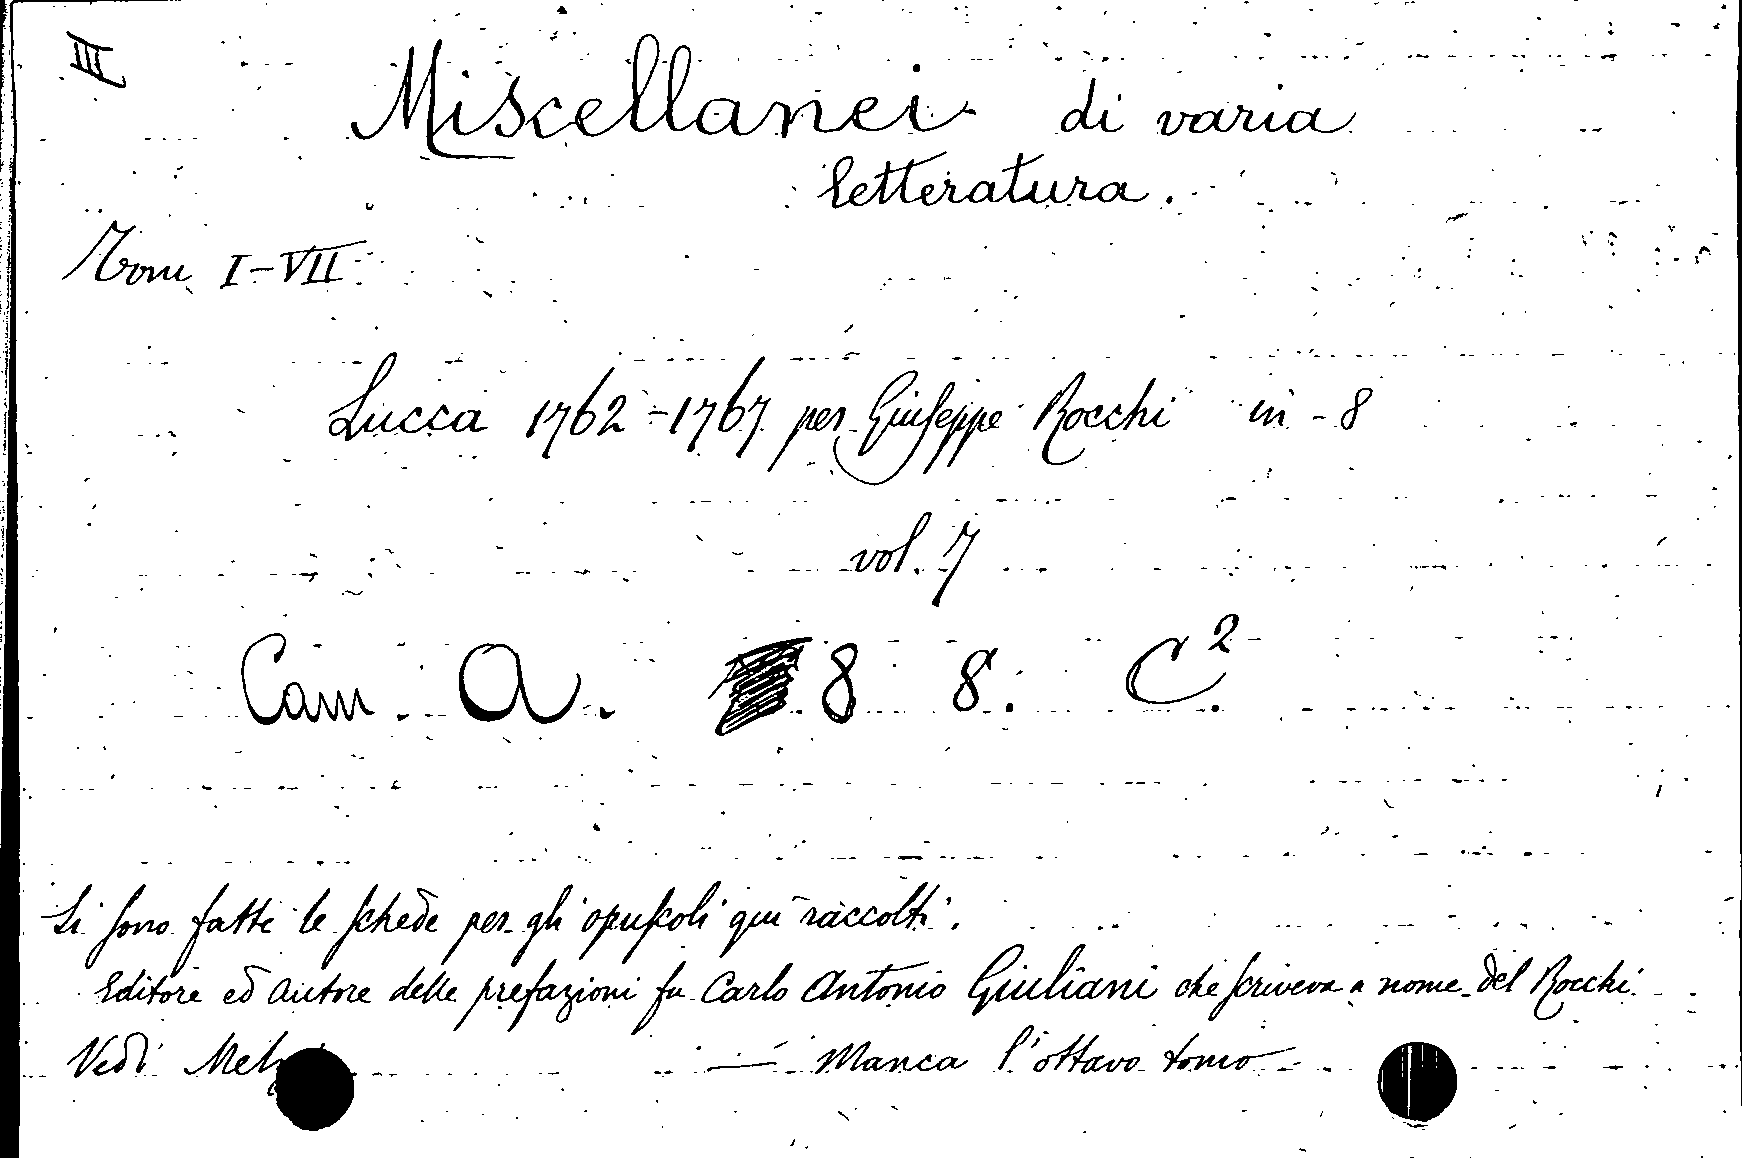 III
Miscellanei di varia
letteratura.
Tomi I-VII
Lucca 1762-1767 per Giuseppe Rocchi in-8
vol. 7
Cam. A. 8 8. C².
Si sono fatte le schede per gli opuscoli qui raccolti.
Editore ed autore delle prefazioni fu Carlo Antonio Giuliani che scriveva a nome del Rocchi.
Vedi — Manca l'ottavo tomo